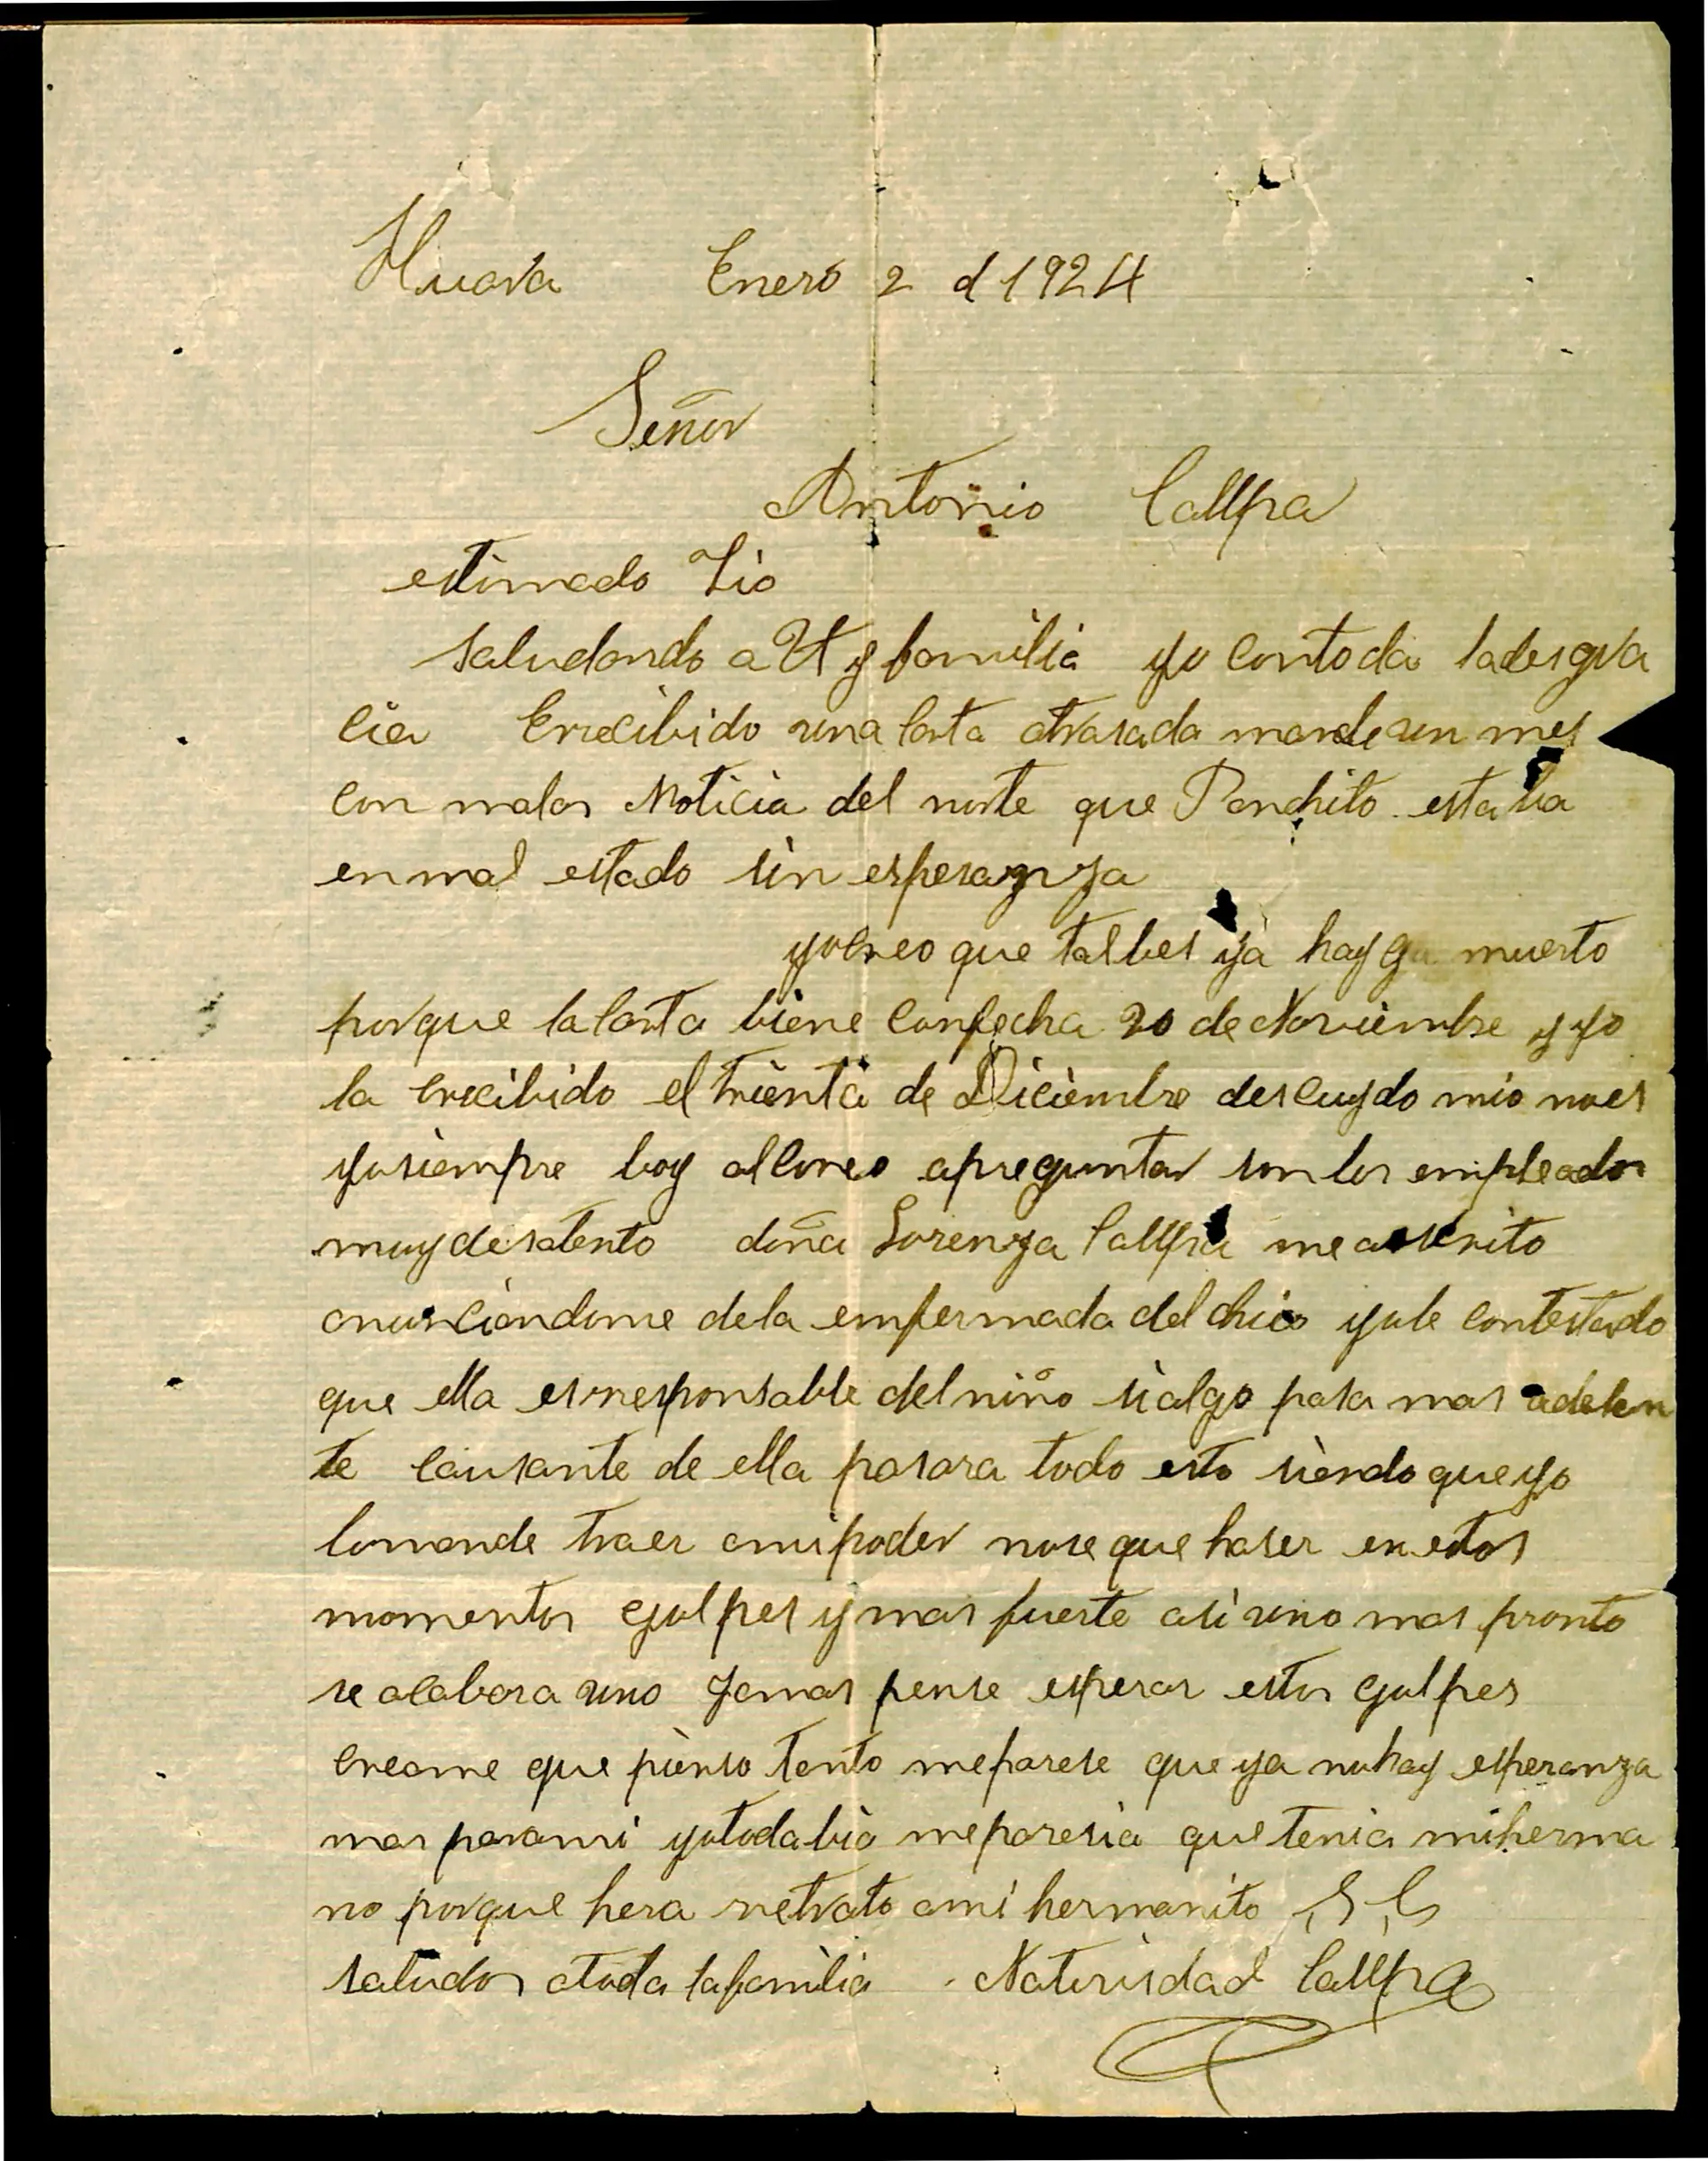 Huara Enero 2 d 1924
Señor
Antonio Callpa
estimado Tio
Saludando a Ut y familia yo contoda ladesgra
cia Errecibido una carta atrasada mande un mes
con malas Noticia del norte que Panchito estaba
en mal estado sin esperanza
yocreo que talbes ya hayga muerto
porque lacarta biene confecha 20 de Noviembre y yo
la errecibido el trienta de Diciembre descuydo mio noes
yosiempre boy alcoreo apreguntar son los empleados
muydesatento doña Lorenza Callpa me a escrito
anunciandome dela enfermada del chico yole contestado
que ella esrresponsable del niño sialgo pasa mas adelan
te causante de ella pasara todo esto siendo queyo
lomande traer amipoder nose que haser en estos
momentos golpes y mas fuerte asi uno mas pronto
se acabara uno Jamas pense esperar estos golpes
creame que pienso tanto meparese que ya nohay esperanza
mas parami yotodabia meparesia quetenia miherma
no porque hera rretrato ami hermanito S, S,
saludos atoda lafamilia . Natividad Callpa